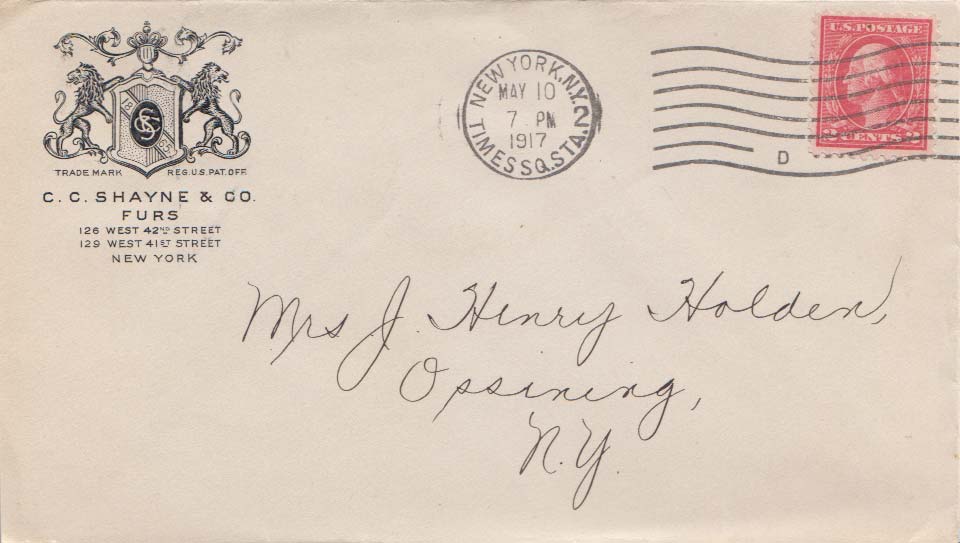 18 93
CCS
TRADE MARK REG. U.S. PAT. OFF.
C. C. SHAYNE & CO.
FURS
126 WEST 42ND STREET
129 WEST 41ST STREET
NEW YORK
NEW YORK, N.Y. 2
MAY 10
7 PM
1917
TIMES SQ. STA.
D
U.S. POSTAGE
2 CENTS 2
Mrs J. Henry Holden,
Ossining,
N.Y.